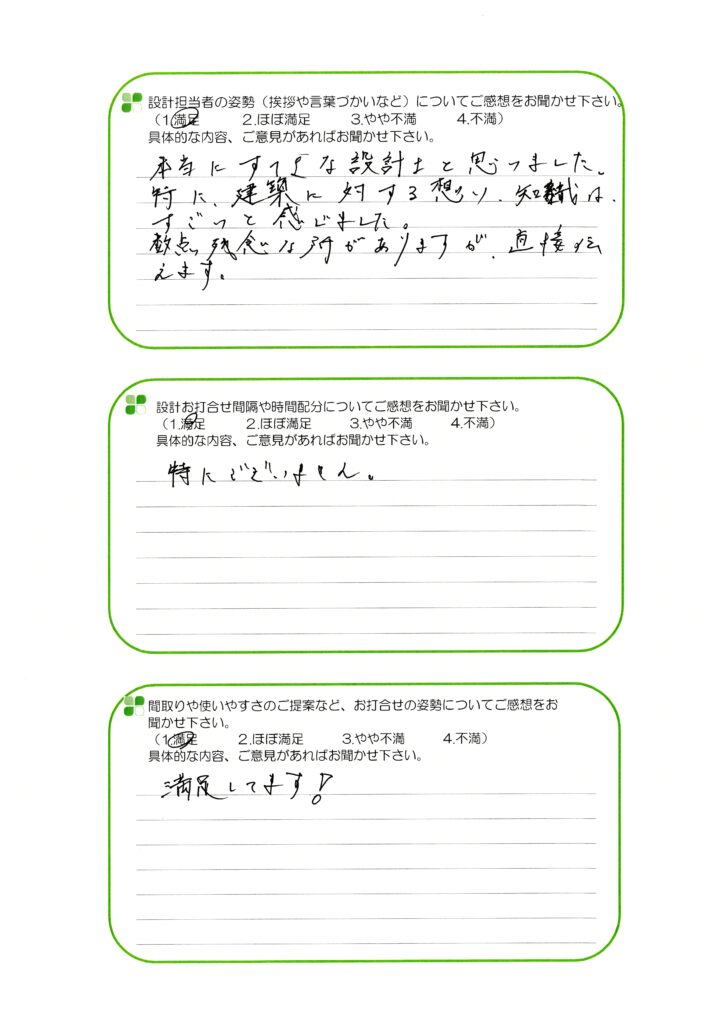 設計担当者の姿勢（挨拶や言葉づかいなど）についてご感想をお聞かせ下さい。
（1.満足　2.ほぼ満足　3.やや不満　4.不満）
具体的な内容、ご意見があればお聞かせ下さい。
本当にすてきな設計士と思いました。
特に、建築に対する想い、知識は、
すごいと感じました。
数点残念な所がありますが、直接伝
えます。
設計お打合せ間隔や時間配分についてご感想をお聞かせ下さい。
（1.満足　2.ほぼ満足　3.やや不満　4.不満）
具体的な内容、ご意見があればお聞かせ下さい。
特にございません。
間取りや使いやすさのご提案など、お打合せの姿勢についてご感想をお
聞かせ下さい。
（1.満足　2.ほぼ満足　3.やや不満　4.不満）
具体的な内容、ご意見があればお聞かせ下さい。
満足してます！